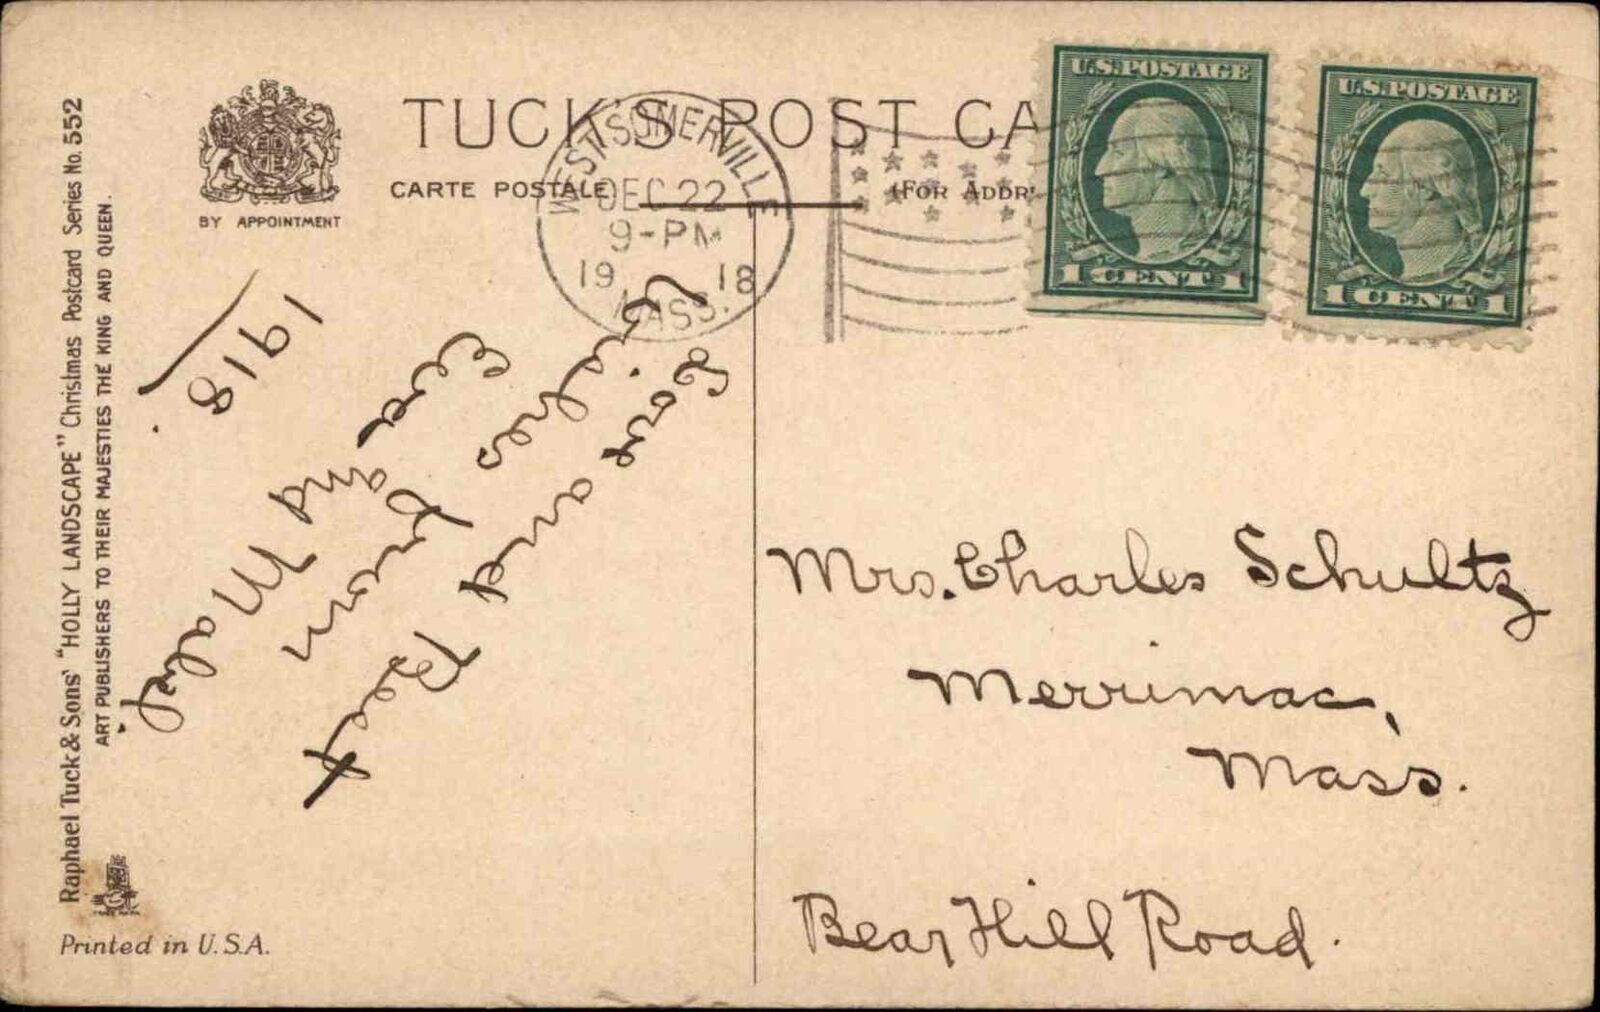 TUCK'S POST CA
CARTE POSTALE
(FOR ADDR
BY APPOINTMENT
WEST SOMERVILLE
DEC 22
9-PM
19 18
MASS.
U.S. POSTAGE
1 CENT 1
U.S. POSTAGE
1 CENT 1
Raphael Tuck & Sons' "HOLLY LANDSCAPE" Christmas Postcard Series No. 552
ART PUBLISHERS TO THEIR MAJESTIES THE KING AND QUEEN.
TRADE MARK
Printed in U.S.A.
Love and Best
Wishes from
Eva and Mabel.
1918
Mrs. Charles Schultz
Merrimac,
Mass.
Bear Hill Road.